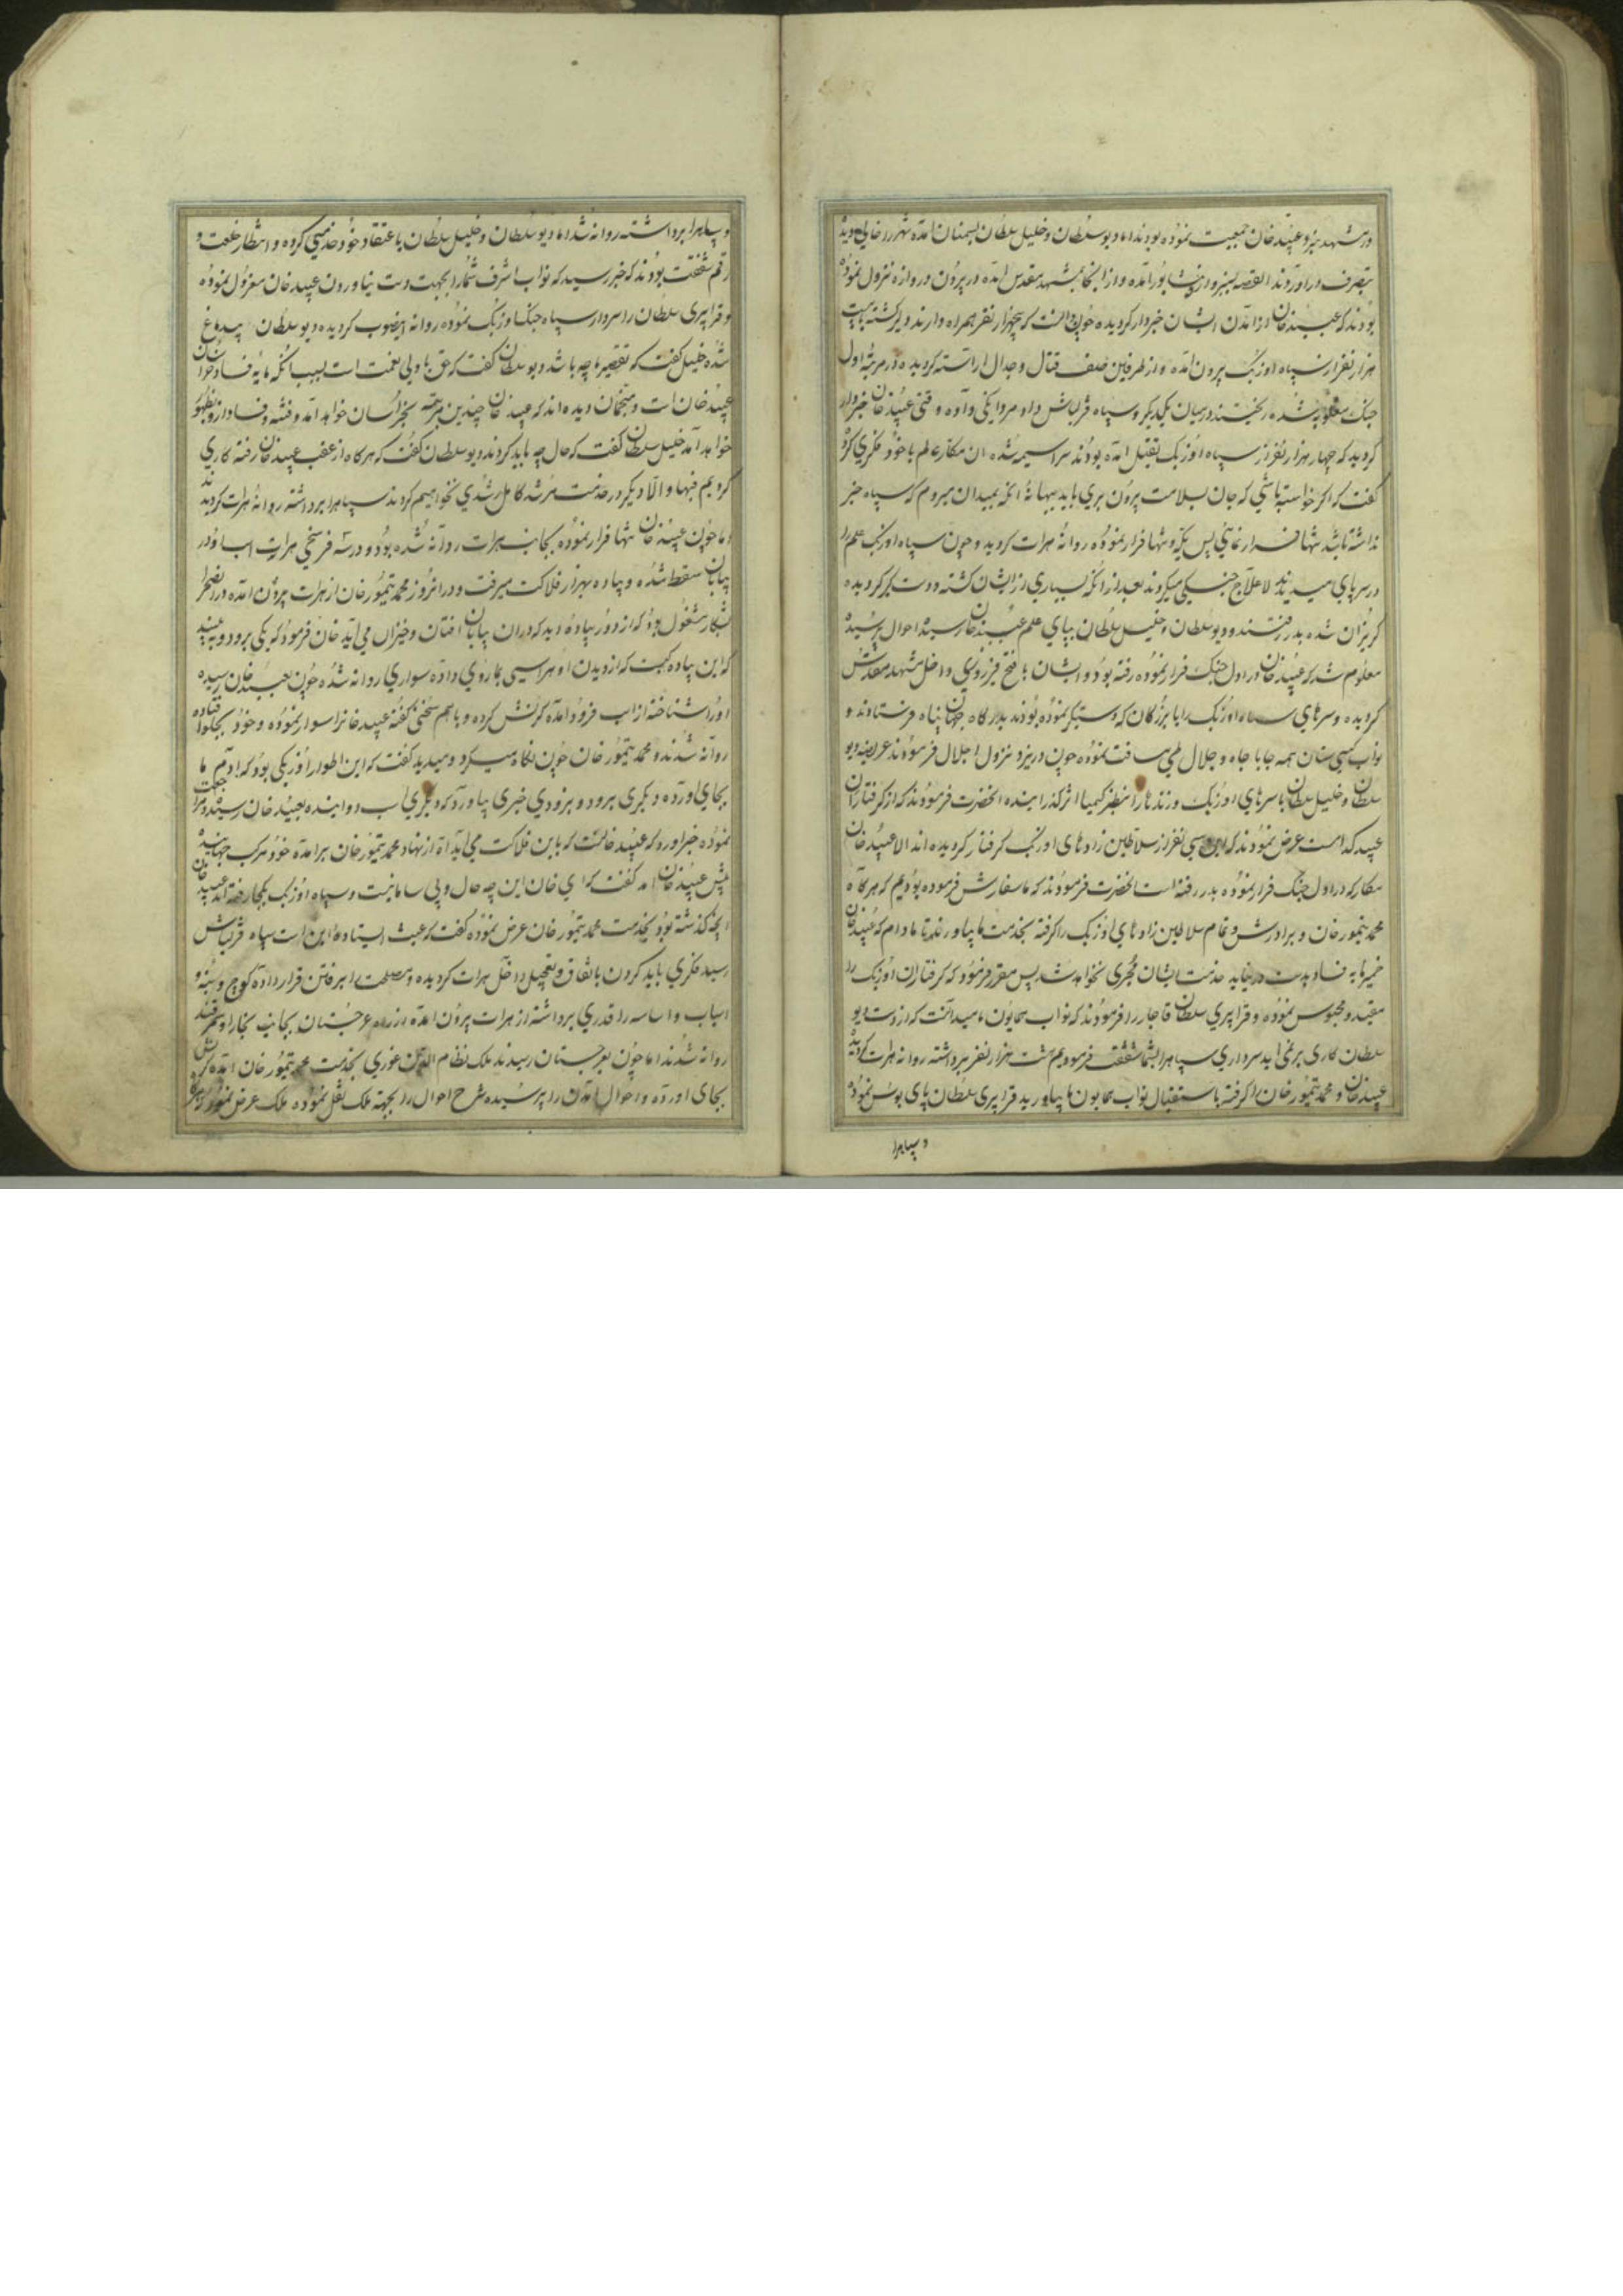 در مشهد نزد عبید خان جمعیت نموده بودند اما دیو سلطان و خلیل سلطان بسمنان امده شهر را خالی دیده
بتصرف در اوردند القصه بسبزوار و نیشابور امده و از انجا بمشهد مقدس امده در بیرون دروازه نزول نموده
بودند که عبید خان از امدن ایشان خبردار گردیده چون دانست که پنجهزار نفر همراه دارند و برگشته با بیست
هزار نفر از سپاه اوزبک بیرون امده و از طرفین صف قتال و جدال اراسته گردیده در مرتبه اول
جنک مغلوبه شده ریختند در میان یکدیگر و سپاه قزلباش داد مردانکی داده وقتی عبید خان خبردار
گردید که چهار هزار نفر از سپاه اوزبک بقتل امده بودند سراسیمه شده ان مکار عالم با خود فکری کرد
گفت که اگر خواسته باشی که جان بسلامت بیرون بری باید ببهانه انکه بمیدان میروم که سپاه خبر
نداشته باشد تنها فرار نمائی پس یکه و تنها فرار نموده روانه هرات گردید و چون سپاه اوزبک علم را
در سر پای میدیدند لاعلاج جنگی میکردند بعد از انکه بسیاری از ایشان کشته و دستگیر گردیده
گریزان شده بدر رفتند و دیو سلطان و خلیل سلطان بپای علم عبید خان رسیده احوال پرسیده
معلوم شد که عبید خان در اول جنک فرار نموده رفته بود و ایشان با فتح فیروزی داخل مشهد مقدس
گردیده و سرهای سپاه اوزبک را با بزرگان که دستگیر نموده بودند بدرگاه جهان پناه فرستادند و
نواب گیتی ستان همه جا با جاه و جلال طی مسافت نموده چون در یزد نزول اجلال فرمودند عریضه دیو
سلطان و خلیل سلطان با سرهای اوزبک و زنده ها را بنظر کیمیا اثر گذرانیده انحضرت فرمودند که از گرفتاران
عبید کدامست عرض نمودند که سی نفر از سلاطین زادهای اوزبک گرفتار گردیده اند الا عبید خان
مکار که در اول جنک فرار نموده بدر رفته است انحضرت فرمودند که ما سفارش فرموده بودیم که هرگاه
محمد تیمور خان و برادرش و تمام سلاطین زادهای اوزبک را گرفته بخدمت ما بیاورند تا مادام که عبید خان
خمیرمایه فساد بدست در نیاید خدمت ایشان مجری نخواهد شد پس مقرر فرمود که گرفتاران اوزبک را
مقید و محبوس نموده و قراپیری سلطان قاجار را فرمودند که نواب همایون ما میدانست که از دست دیو
سلطان کاری بر نمی اید سرداری سپاه را بشما شفقت فرمودیم شت هزار نفر برداشته روانه هرات گردیده
عبید خان و محمد تیمور خان را گرفته باستقبال نواب همایون ما بیاورید قراپیری سلطان پای بوس نموده
و سپاه را
و سپاه را برداشته روانه شد اما دیو سلطان و خلیل سلطان باعتقاد خود خدمتی کرده و انتظار خلعت و
رقم شفقت بودند که خبر رسید که نواب اشرف شما را بجهت دست نیاوردن عبید خان معزول نموده
و قراپیری سلطان را سردار سپاه جنک اوزبک نموده روانه اینصوب گردیده دیو سلطان بیدماغ
شده خلیل گفت که تقصیر ما چه باشد دیو سلطان گفت که حق با ولی نعمت است بسبب انکه مایه فساد خراسان
عبید خان است و منجمان دیده اند که عبید خان چندین مرتبه بخراسان خواهد امد و فتنه و فساد از و بظهور
خواهد امد خلیل سلطان گفت که حال چه باید کرد دیو سلطان گفت که هرگاه از عقب عبید خان رفته کاری
کردیم فبها و الا دیگر در خدمت مرشد کامل رشدی نخواهیم کرد سپاه را برداشته روانه هرات گردیدند
اما چون عبید خان تنها فرار نموده بجانب هرات روانه شده بود و در سه فرسخی هرات اسب او در
بیابان سقط شده و پیاده بهزار فلاکت میرفت و در انروز محمد تیمور خان از هرات بیرون امده در انصحرا
بشکار مشغول بود که از دور پیاده دید که در ان بیابان افتان و خیزان می اید خان فرمود که یکی برود و ببیند
که این پیاده کیست که از دیدن او هراسی بما روی داده سواری روانه شده چون بعبید خان رسیده
او را شناخته از اسب فرود امده کرنش کرده و با هم سخنی گفته عبید خانرا سوار نموده و خود بجلو افتاده
روانه شدند و محمد تیمور خان چون نگاه میکرد و میدید گفت که این اطوار اوزبکی بود که ادم ما
بجای اورده دیگری برود و بزودی خبری بیاورد که دیگری اسب دوانیده بعبید خان رسیده مراجعت
نموده خبر اورد که عبید خانست که باین فلاکت می اید اه از نهاد محمد تیمور خان برامده خود مرکب جهانیده
پیش عبید خان امد گفت که ای خان این چه حال و بی سامانیست و سپاه اوزبک بکجا رفته اند عبید خان
انچه گذشته بود بخدمت محمد تیمور خان عرض نموده گفت که عبث ایستاده این است سپاه قزلباش
رسید فکری باید کردن باتفاق و تعجیل داخل هرات گردیده و مصلحت را برفتن قرار داده کوچ و بنه و
اسباب و اساسه را قدری برداشته از هرات بیرون امده از راه غرجستان بجانب بخارا و سمرقند
روانه شدند اما چون بغرجستان رسیدند ملک نظام الدین غوری بخدمت محمد تیمور خان امده کرنش
بجای اورده و احوال امدن را پرسیده شرح احوال را بجهته ملک نقل نموده ملک عرض نمود